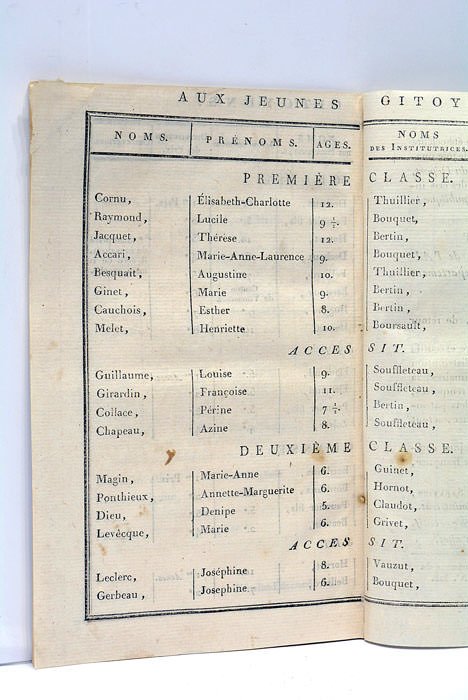 AUX JEUNES GITOY
NOMS. PRÉNOMS. AGES. NOMS
DES INSTITUTRICES.
PREMIÈRE CLASSE.
Cornu, Élisabeth-Charlotte 12. Thuillier,
Raymond, Lucile 9 ½. Bouquet,
Jacquet, Thérèse 12. Bertin,
Accari, Marie-Anne-Laurence 9. Bouquet,
Besquait, Augustine 10. Thuillier,
Ginet, Marie 9. Bertin,
Cauchois, Esther 8. Bertin,
Melet, Henriette 10. Boursault,
ACCES SIT.
Guillaume, Louise 9. Souffleteau,
Girardin, Françoise 11. Souffleteau,
Collace, Périne 7 ½. Bertin,
Chapeau, Azine 8. Souffleteau,
DEUXIÈME CLASSE.
Magin, Marie-Anne 6. Guinet,
Ponthieux, Annette-Marguerite 6. Hornot,
Dieu, Denipe 5. Claudot,
Levêcque, Marie 6. Grivet,
ACCES SIT.
Leclerc, Joséphine 8. Vauzut,
Gerbeau, Josephine 6. Bouquet,